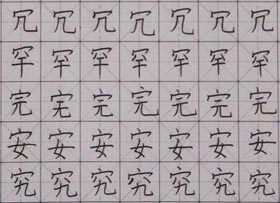 冗冗冗冗冗冗冗
罕罕罕罕罕罕罕
完完完完完完完
安安安安安安安
究究究究究究究